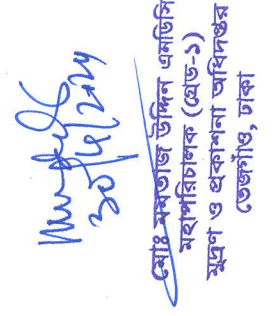 ৩০/৭/২০২৪
মোঃ মমতাজ উদ্দিন এনডিসি
মহাপরিচালক (গ্রেড-১)
মুদ্রণ ও প্রকাশনা অধিদপ্তর
তেজগাঁও, ঢাকা